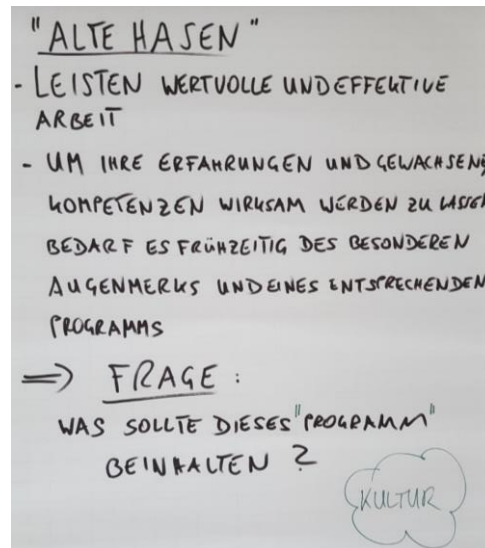 "ALTE HASEN"
- LEISTEN WERTVOLLE UND EFFEKTIVE
ARBEIT
- UM IHRE ERFAHRUNGEN UND GEWACHSENE
KOMPETENZEN WIRKSAM WERDEN ZU LASSEN
BEDARF ES FRÜHZEITIG DES BESONDEREN
AUGENMERKS UND EINES ENTSPRECHENDEN
PROGRAMMS
=> FRAGE:
WAS SOLLTE DIESES "PROGRAMM"
BEINHALTEN?
KULTUR